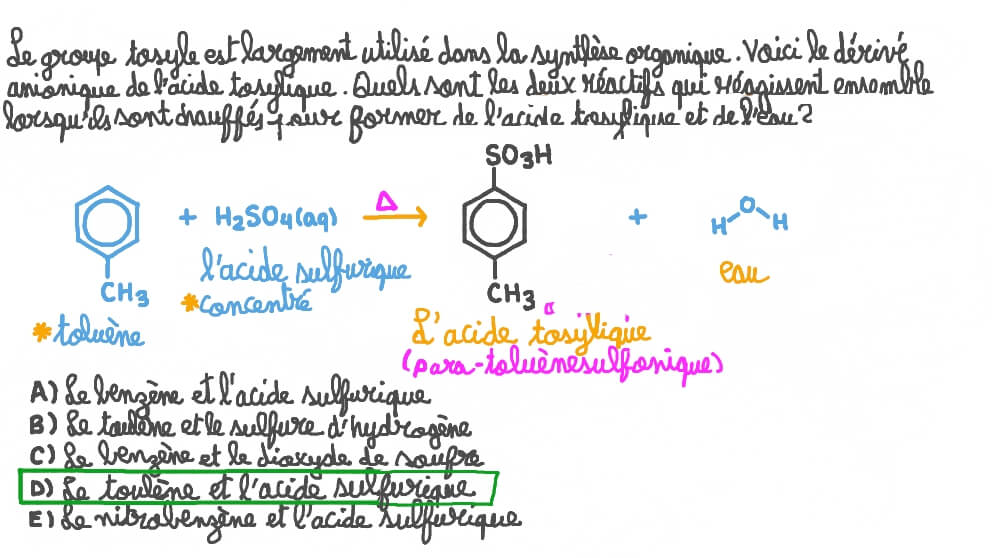 Le groupe tosyle est largement utilisé dans la synthèse organique. Voici le dérivé
anionique de l'acide tosylique. Quels sont les deux réactifs qui réagissent ensemble
lorsqu'ils sont chauffés pour former de l'acide tosylique et de l'eau?
SO3H
+ H2SO4(aq) Δ + H O H
l'acide sulfurique eau
CH3 *concentré CH3
*toluène L'acide tosylique
(para-toluènesulfonique)
A) Le benzène et l'acide sulfurique
B) Le toulène et le sulfure d'hydrogène
C) Le benzène et le dioxyde de soufre
D) Le toulène et l'acide sulfurique
E) Le nitrobenzène et l'acide sulfurique